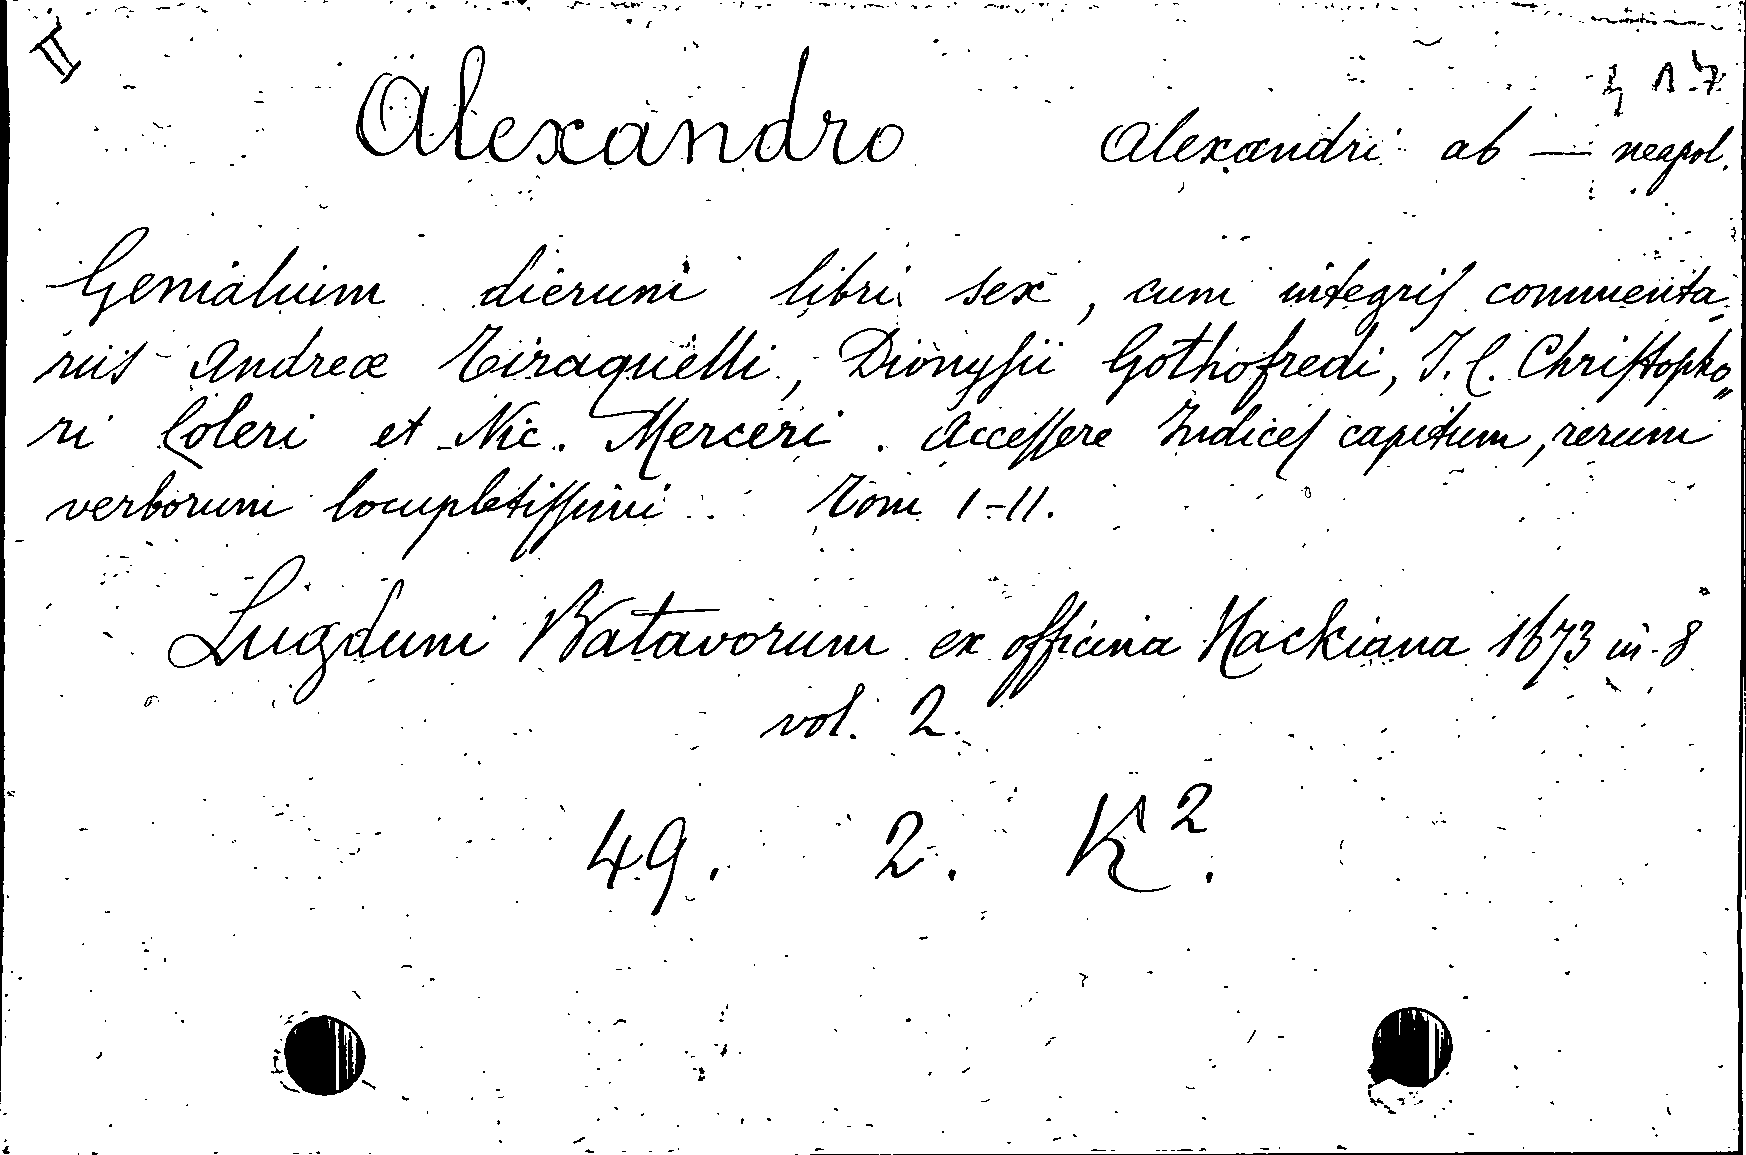 II
Alexandro Alexandri ab — neapol.
Genialium dierum libri sex, cum integris commenta„
riis Andreæ Tiraquelli, Dionysii Gothofredi, J. C. Christopho„
ri Coleri et Nic. Merceri. Accessere Indices capitum, rerum
verborum locupletissimi Tom I-II.
Lugduni Batavorum ex officina Hackiana 1673 in 8
vol. 2.
49. 2. K².